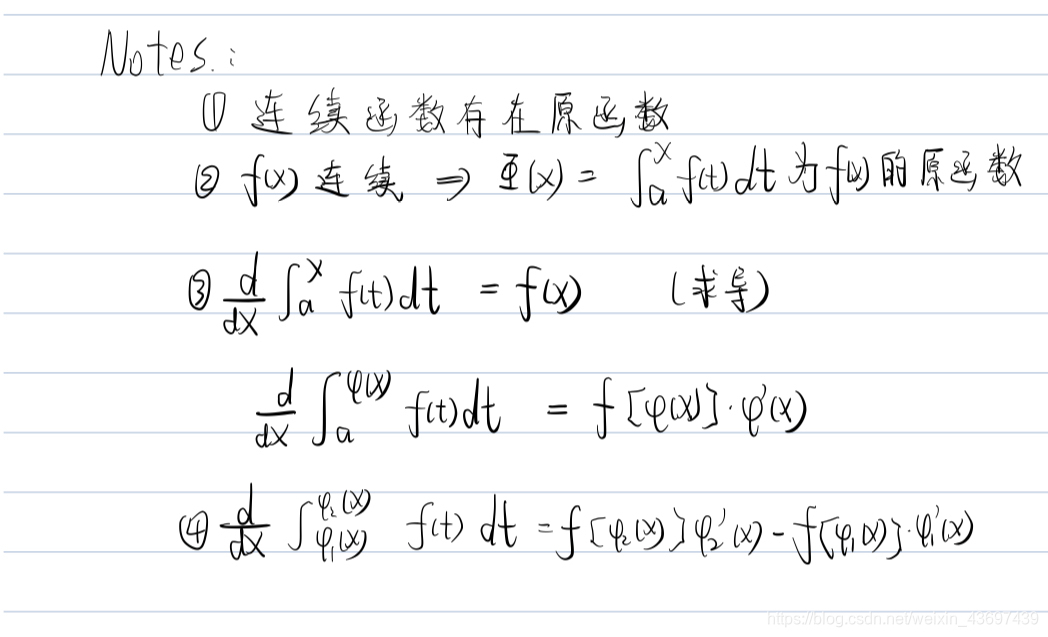 Notes:
① 连续函数存在原函数
② f(x) 连续 ⇒ Φ(x) = ∫ₐˣ f(t)dt 为 f(x) 的原函数
③ d/dx ∫ₐˣ f(t)dt = f(x) (求导)
d/dx ∫ₐ^φ(x) f(t)dt = f[φ(x)]·φ'(x)
④ d/dx ∫_φ₁(x)^φ₂(x) f(t) dt = f[φ₂(x)]φ₂'(x) - f[φ₁(x)]·φ₁'(x)
https://blog.csdn.net/weixin_43697439